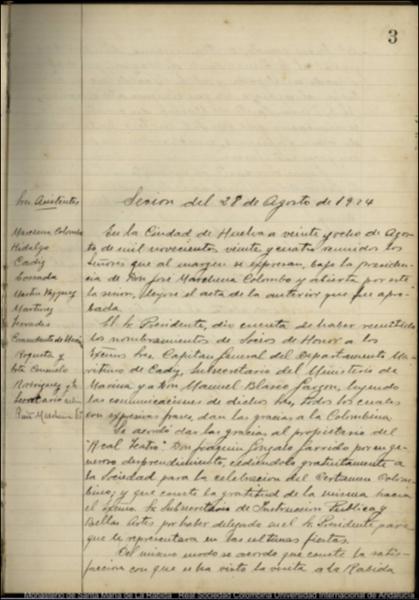 3
Sres Asistentes
Marchena Colombo
Hidalgo
Cádiz
Terrades
Sesion del 28 de Agosto de 1924
En la Ciudad de Huelva a veinte y ocho de Agos-
to, de mil novecientos veinte y cuatro reunidos los
Señores que al margen se expresan, bajo la presiden-
cia de Don José Marchena Colombo y abierta por este
la sesion, leyose el acta de la anterior que fue apro-
bada.
El Sr. Presidente, dio cuenta de haber remitido
los nombramientos de Socios de Honor a los
Excmos Sres Capitan General del Departamento Ma-
ritimo de Cadiz, Subsecretario del Ministerio de
Marina y a Don Manuel Blasco Garzon, leyendo
las comunicaciones de dichos Sres, todos los cuales
con expresivas frases, dan las gracias a la Colombina
Se acordó dar las gracias al propietario del
"Real Teatro" Don Joaquin Gonzalo Garrido por su ge-
neroso desprendimiento, cediendolo gratuitamente a
la Sociedad para la celebracion del Certamen Colom-
bino, y que conste la gratitud de la misma hacia
el Excmo Sr. Subsecretario de Instruccion Publica y
Bellas Artes por haber delegado en el Sr. Presidente para
que le representara en las ultimas fiestas.
Del mismo modo se acordo que conste la satis-
faccion con que se ha visto la visita a la Rabida
Monasterio de Santa María de La Rábida - Real Sociedad Colombina Universidad Internacional de Andalucía